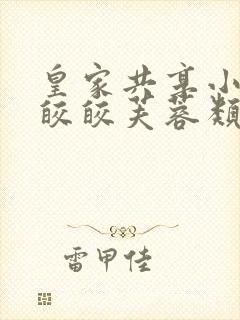 皇家共享小
皎皎芙蓉類
雷甲佳